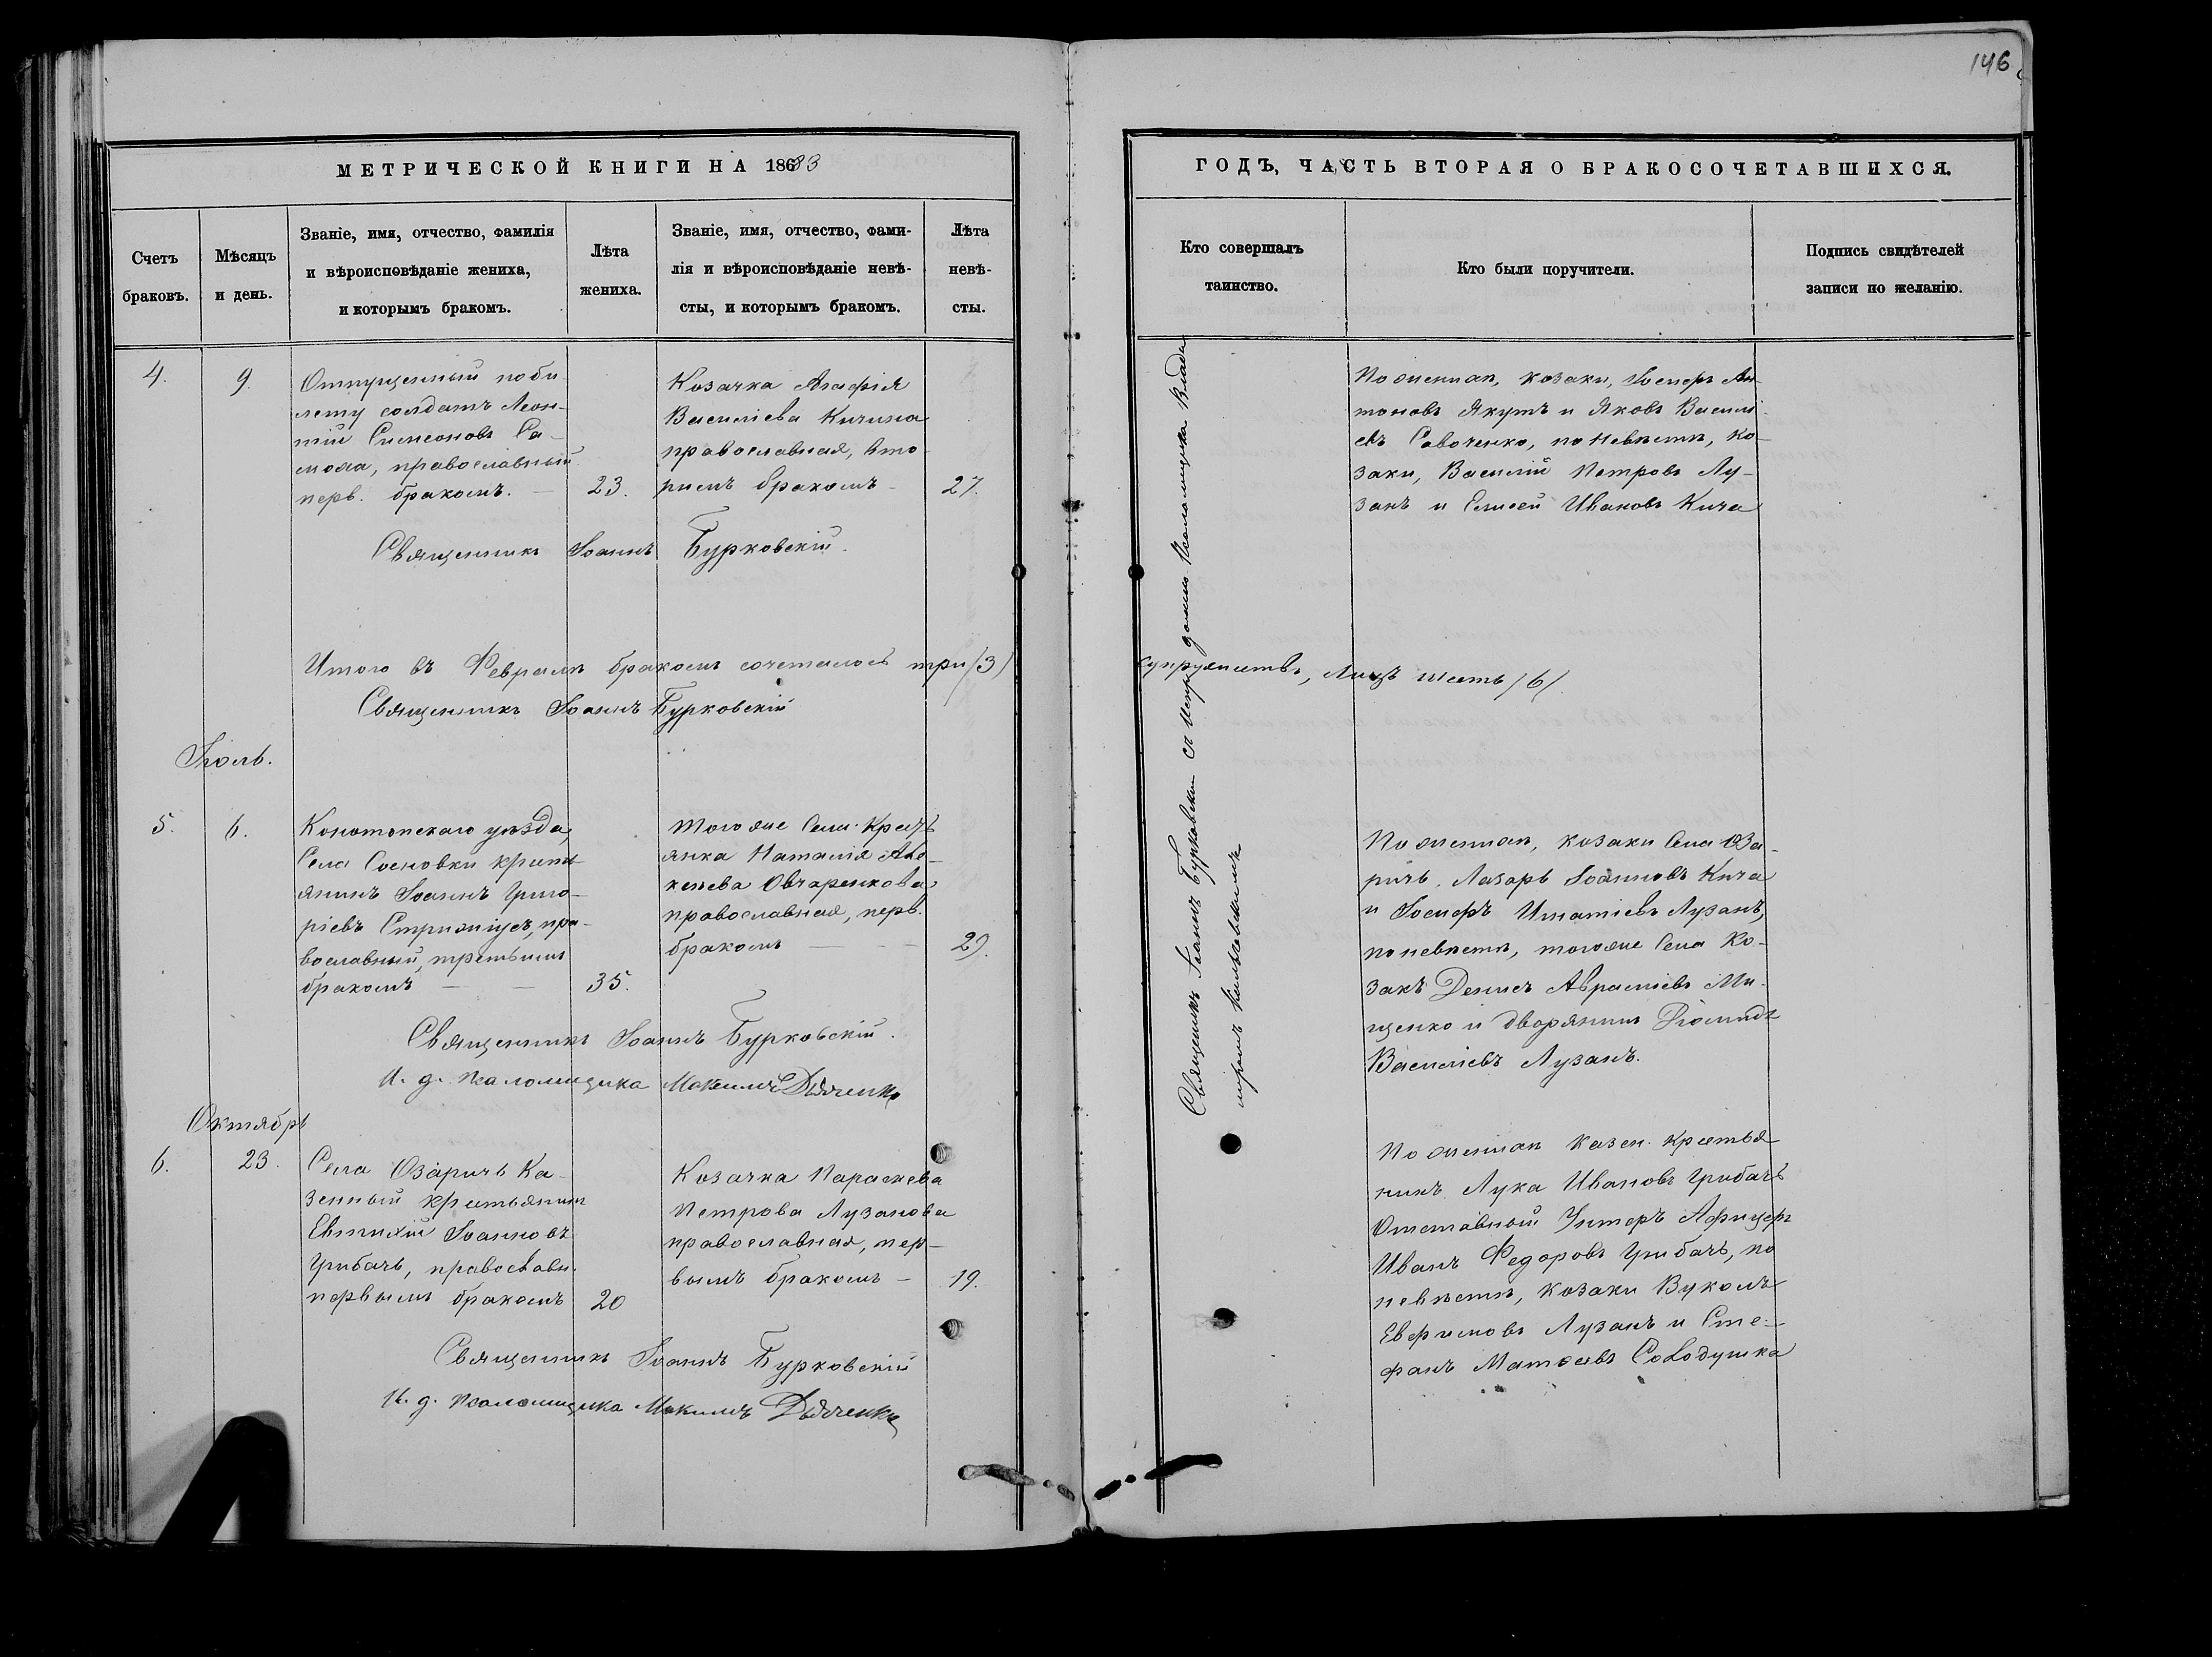 146
МЕТРИЧЕСКОЙ КНИГИ НА 1883
ГОДЪ, ЧАСТЬ ВТОРАЯ О БРАКОСОЧЕТАВШИХСЯ.
Счетъ
браковъ.
Мѣсяцъ
и день.
Званіе, имя, отчество, фамилія
и вѣроисповѣданіе жениха,
и которымъ бракомъ.
Лѣта
жениха.
Званіе, имя, отчество, фами-
лія и вѣроисповѣданіе невѣ-
сты, и которымъ бракомъ.
Лѣта
невѣ-
сты.
Кто совершалъ
таинство.
Кто были поручители.
Подпись свидѣтелей
записи по желанію.
4.
9.
Отпущенный по би-
лету солдатъ Леон-
тій Симеоновъ Са-
моха, православный
перв. бракомъ.
23.
Козачка Агафія
Василіева Кичина
православная, вто
рымъ бракомъ
27.
По женихѣ, козаки, Іосифъ Ан-
тоновъ Якутъ и Яковъ Василі-
евъ Савоченко, по невѣстѣ, ко-
заки, Василій Петровъ Лу-
занъ и Елисей Ивановъ Кича
Священникъ Іоаннъ Бурковскій.
Итого въ Февралѣ бракомъ сочеталось три /3/
супружествъ, лицъ шесть /6/.
Священникъ Іоаннъ Бурковскій
Священникъ Іоаннъ Бурковскій съ псаломщика Влади
міромъ
Іюль.
5.
6.
Конотопскаго уѣзда,
Села Сосновки кресть
янинъ Іоаннъ Григо-
ріевъ Стрижіусъ, пра-
вославный, третьимъ
бракомъ
35.
того же Села Крест
янка Наталія Але-
ксѣева Овчаренкова,
православная, перв.
бракомъ
29.
По женихѣ, козаки Села Оза-
ричъ, Лазарь Іоанновъ Кича
и Іосифъ Игнатіевъ Лузанъ,
по невѣстѣ, того же Села Ко-
закъ Денисъ Авраміевъ Ми-
щенко и дворянинъ Діомидъ
Василіевъ Лузанъ.
Священникъ Іоаннъ Бурковскій.
И. д. псаломщика Максимъ Дьяченко
Октябрь
6.
23.
Села Озаричъ Ка-
зенный крестьянин
Евтихій Іоанновъ
Грибачъ, православн.
первымъ бракомъ
20
Козачка Параскева
Петрова Лузанова
православная, пер-
вымъ бракомъ
19.
По женихѣ казен. крестья
нинъ Лука Ивановъ Грибачъ
Отставной Унтеръ Афицеръ
Иванъ Федоровъ Грибачъ, по
невѣстѣ, козаки Вуколъ
Евфимовъ Лузанъ и Сте-
фанъ Матѳеевъ Солодушка
Священникъ Іоаннъ Бурковскій
И. д. псаломщика Максимъ Дьяченко